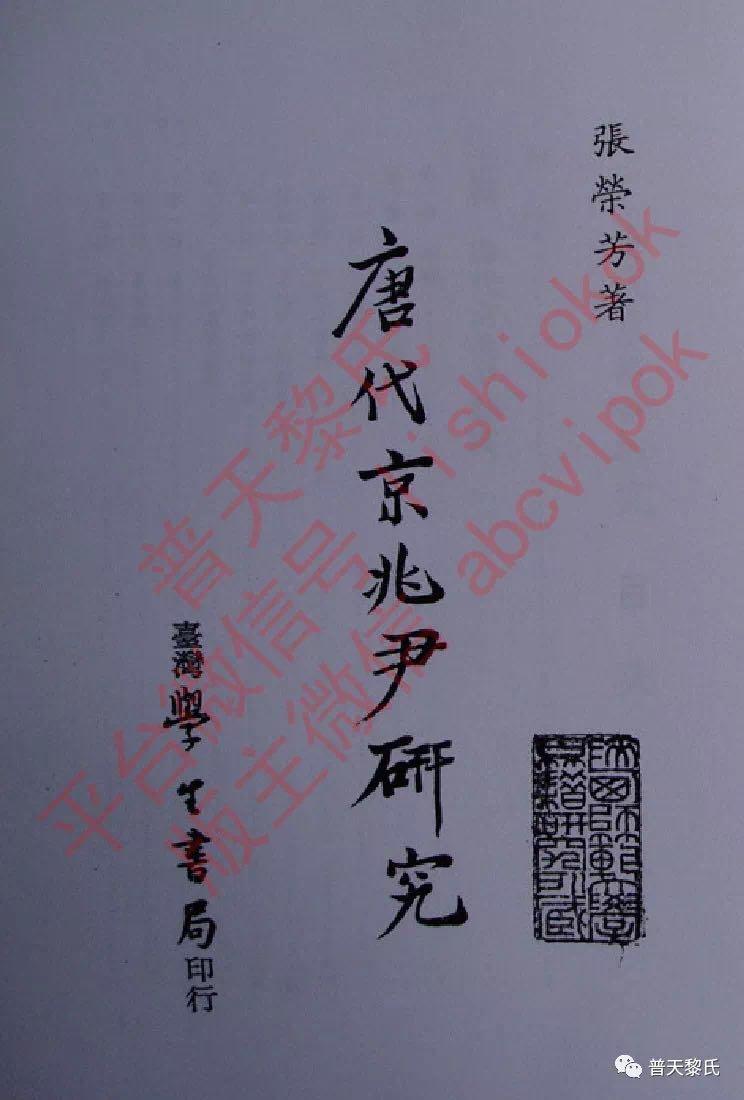 張榮芳著
唐代京兆尹研究
臺灣學生書局印行
普天黎氏
平台微信号 lishiokok
版主微信 abcvipok
普天黎氏